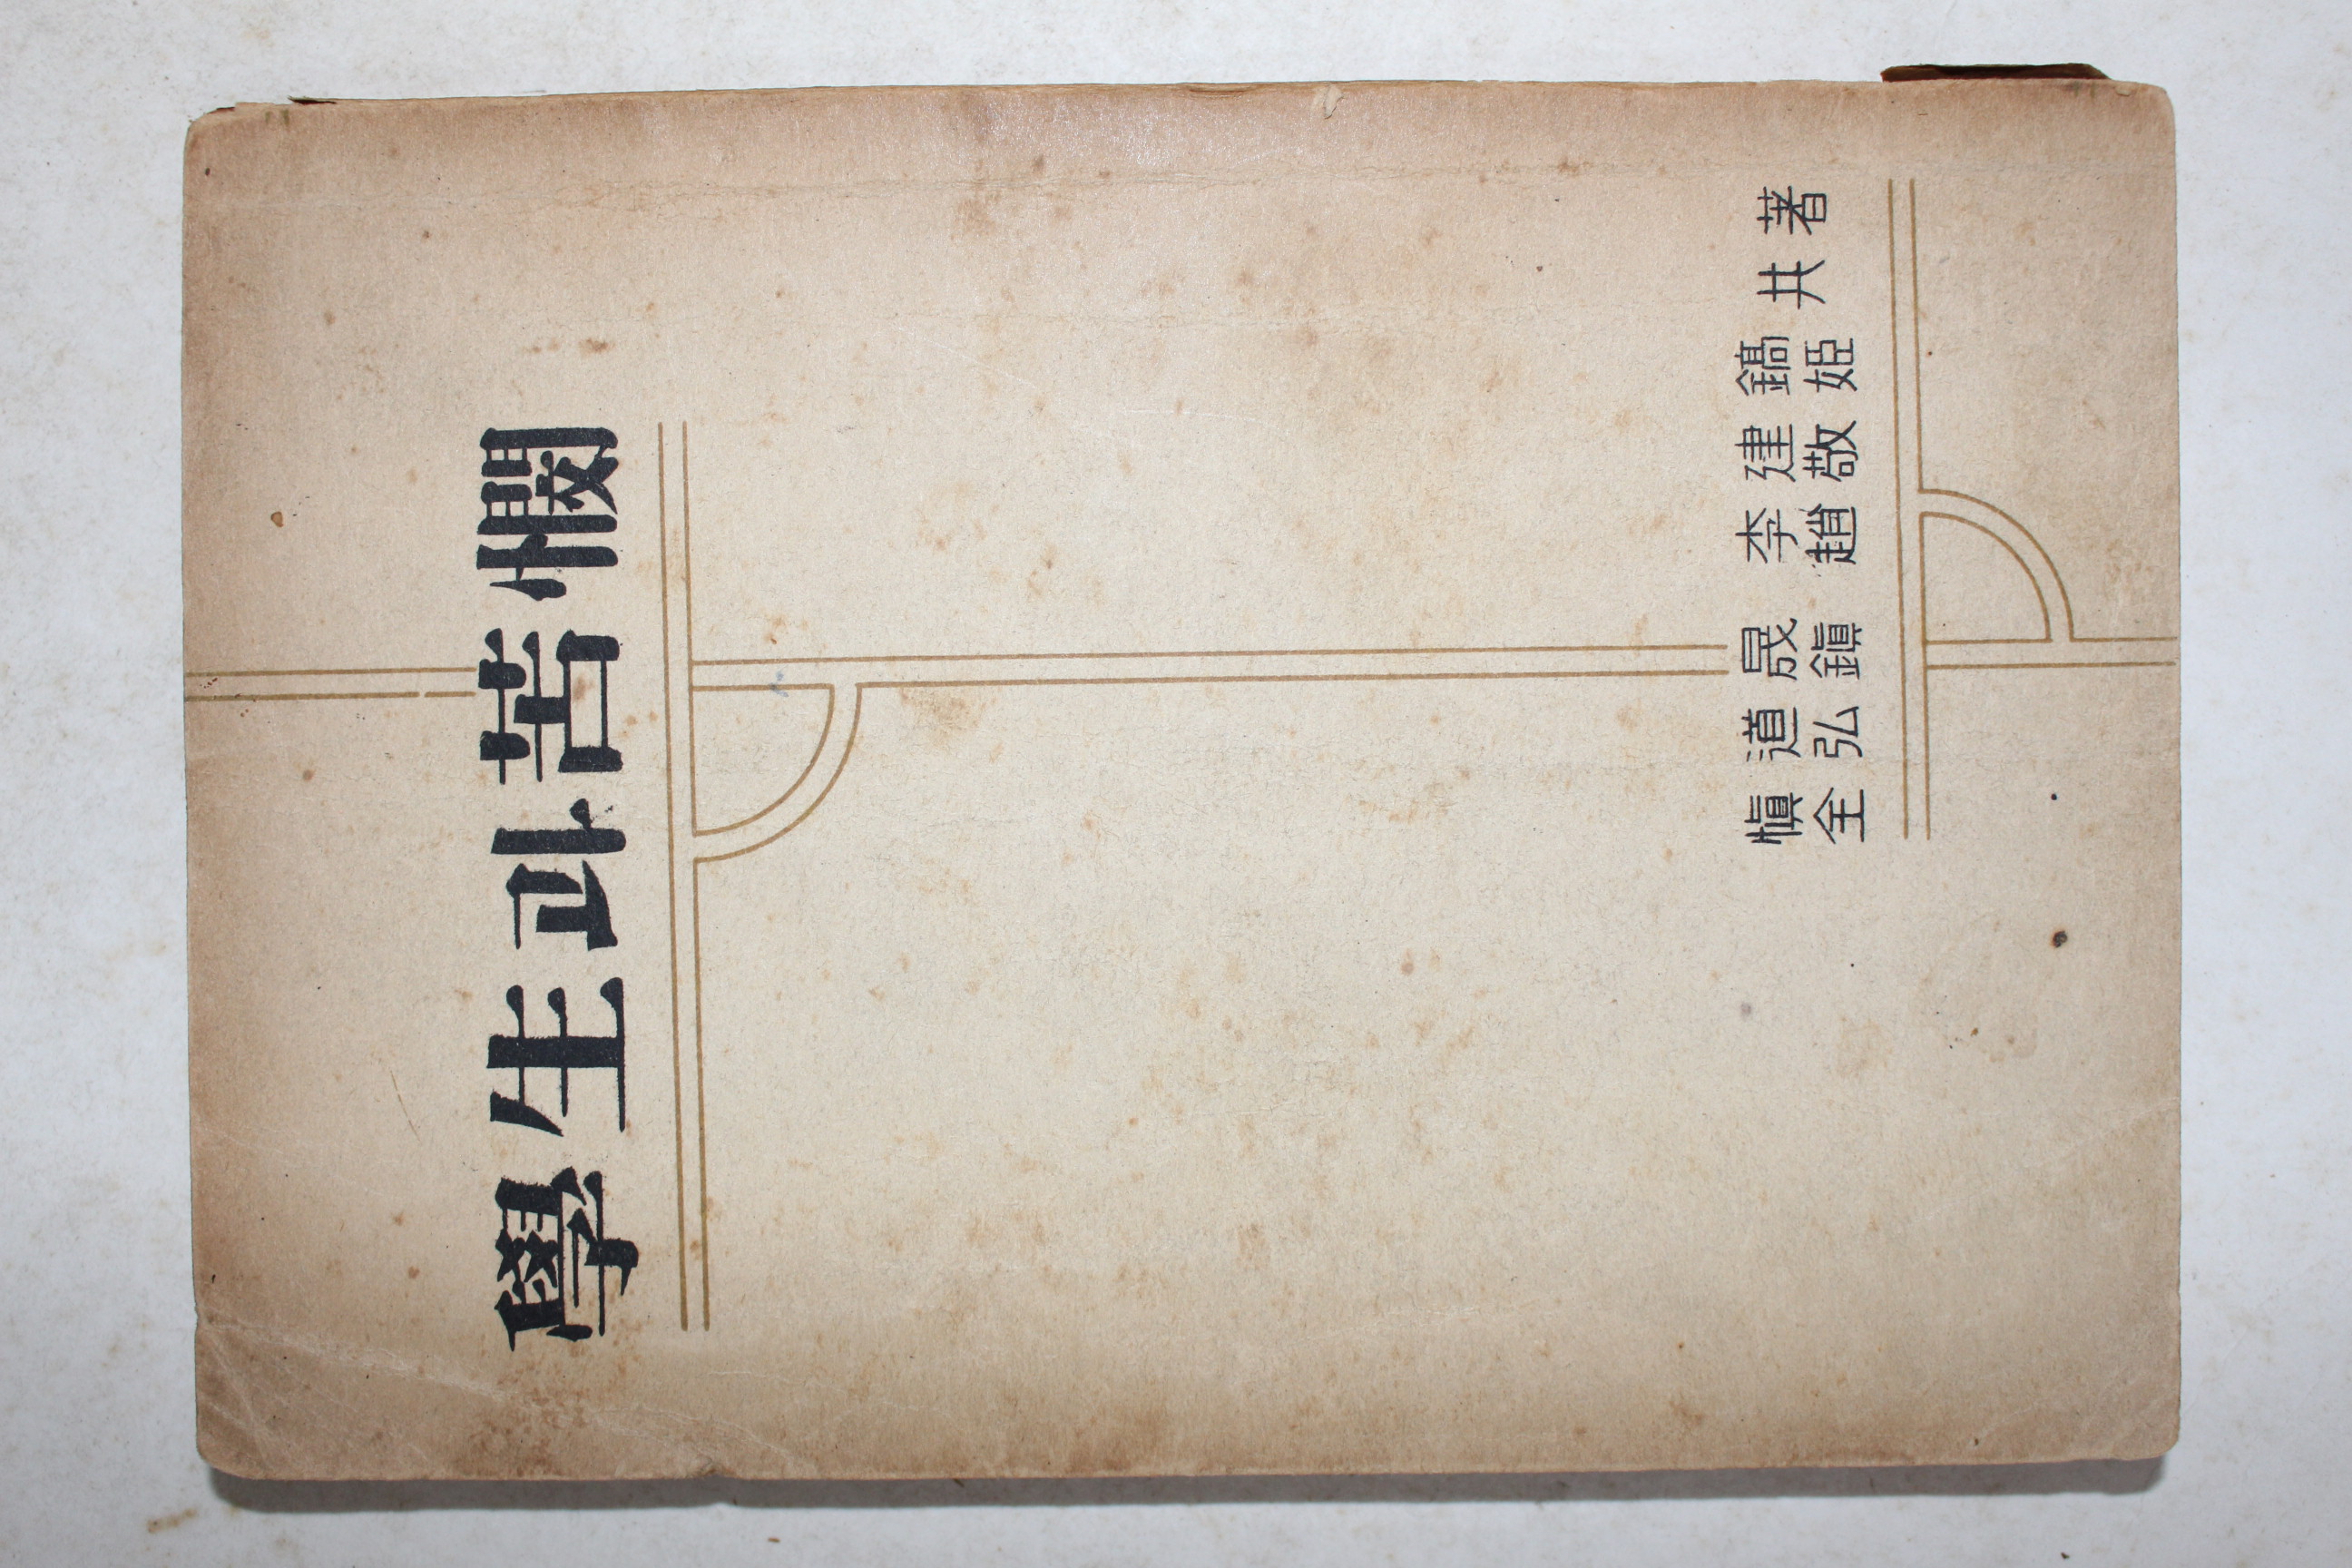 學生과苦憫
愼道晟 李建鎬
全弘鎭 趙敬姫
共著